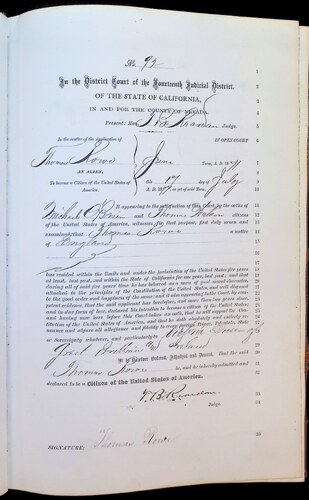 No. 92
In the District Court of the Fourteenth Judicial District,
OF THE STATE OF CALIFORNIA,
IN AND FOR THE COUNTY OF NEVADA.
Present: Hon. Judge.
In the matter of the Application of
IN OPEN COURT
Thomas Rowe
June Term, A. D. 18
AN ALIEN,
To become a Citizen of the United States of
America.
17 day of July
A. D. 18
It appearing to the satisfaction of this Court, by the oaths of
Michael O'Brien and Thomas citizens
of the United States of America, witnesses for that purpose, first duly sworn and
examined, that Thomas Rowe a native
of England
has resided within the limits and under the jurisdiction of the United States five years
at least, last past, and within the State of California for one year, last past; and that
during all of said five years' time he has behaved as a man of good moral character,
attached to the principles of the Constitution of the United States, and well disposed
to the good order and happiness of the same; and it also appearing to the Court, by com-
petent evidence, that the said applicant has heretofore, and more than two years since,
and in due form of law, declared his intention to become a citizen of the United States,
and having now here before this Court taken an oath, that he will support the Consti-
tution of the United States of America, and that he doth absolutely and entirely re-
nounce and abjure all allegiance and fidelity to every foreign Prince, Potentate, State
or Sovereignty whatever, and particularly to Victoria Queen of
Great Brittain and Ireland
It is therefore Ordered, Adjudged and Decreed, that the said
Thomas Rowe be, and he hereby admitted and
declared to be a Citizen of the United States of America.
Judge
SIGNATURE: Thomas Rowe